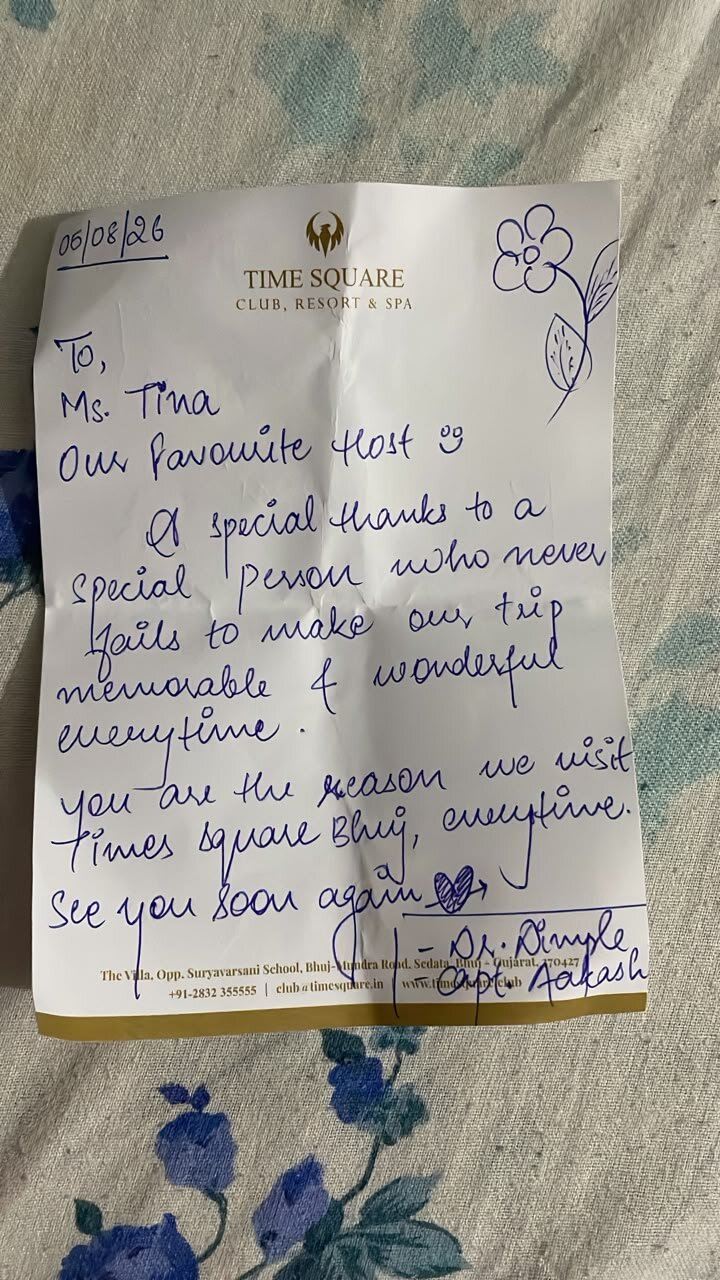 06/08/26
TIME SQUARE
CLUB, RESORT & SPA
To,
Ms. Tina
Our favourite Host
A special thanks to a
special person who never
fails to make our trip
memorable & wonderful
everytime.
You are the reason we visit
Times Square Bhuj, everytime.
See you soon again
- Dr. Dimple
Capt. Aakash
The Villa, Opp. Suryavarsani School, Bhuj-Mundra Road, Sedata, Bhuj - Gujarat, 370427
+91-2832 355555 | club@timesquare.in | www.timesquare.club